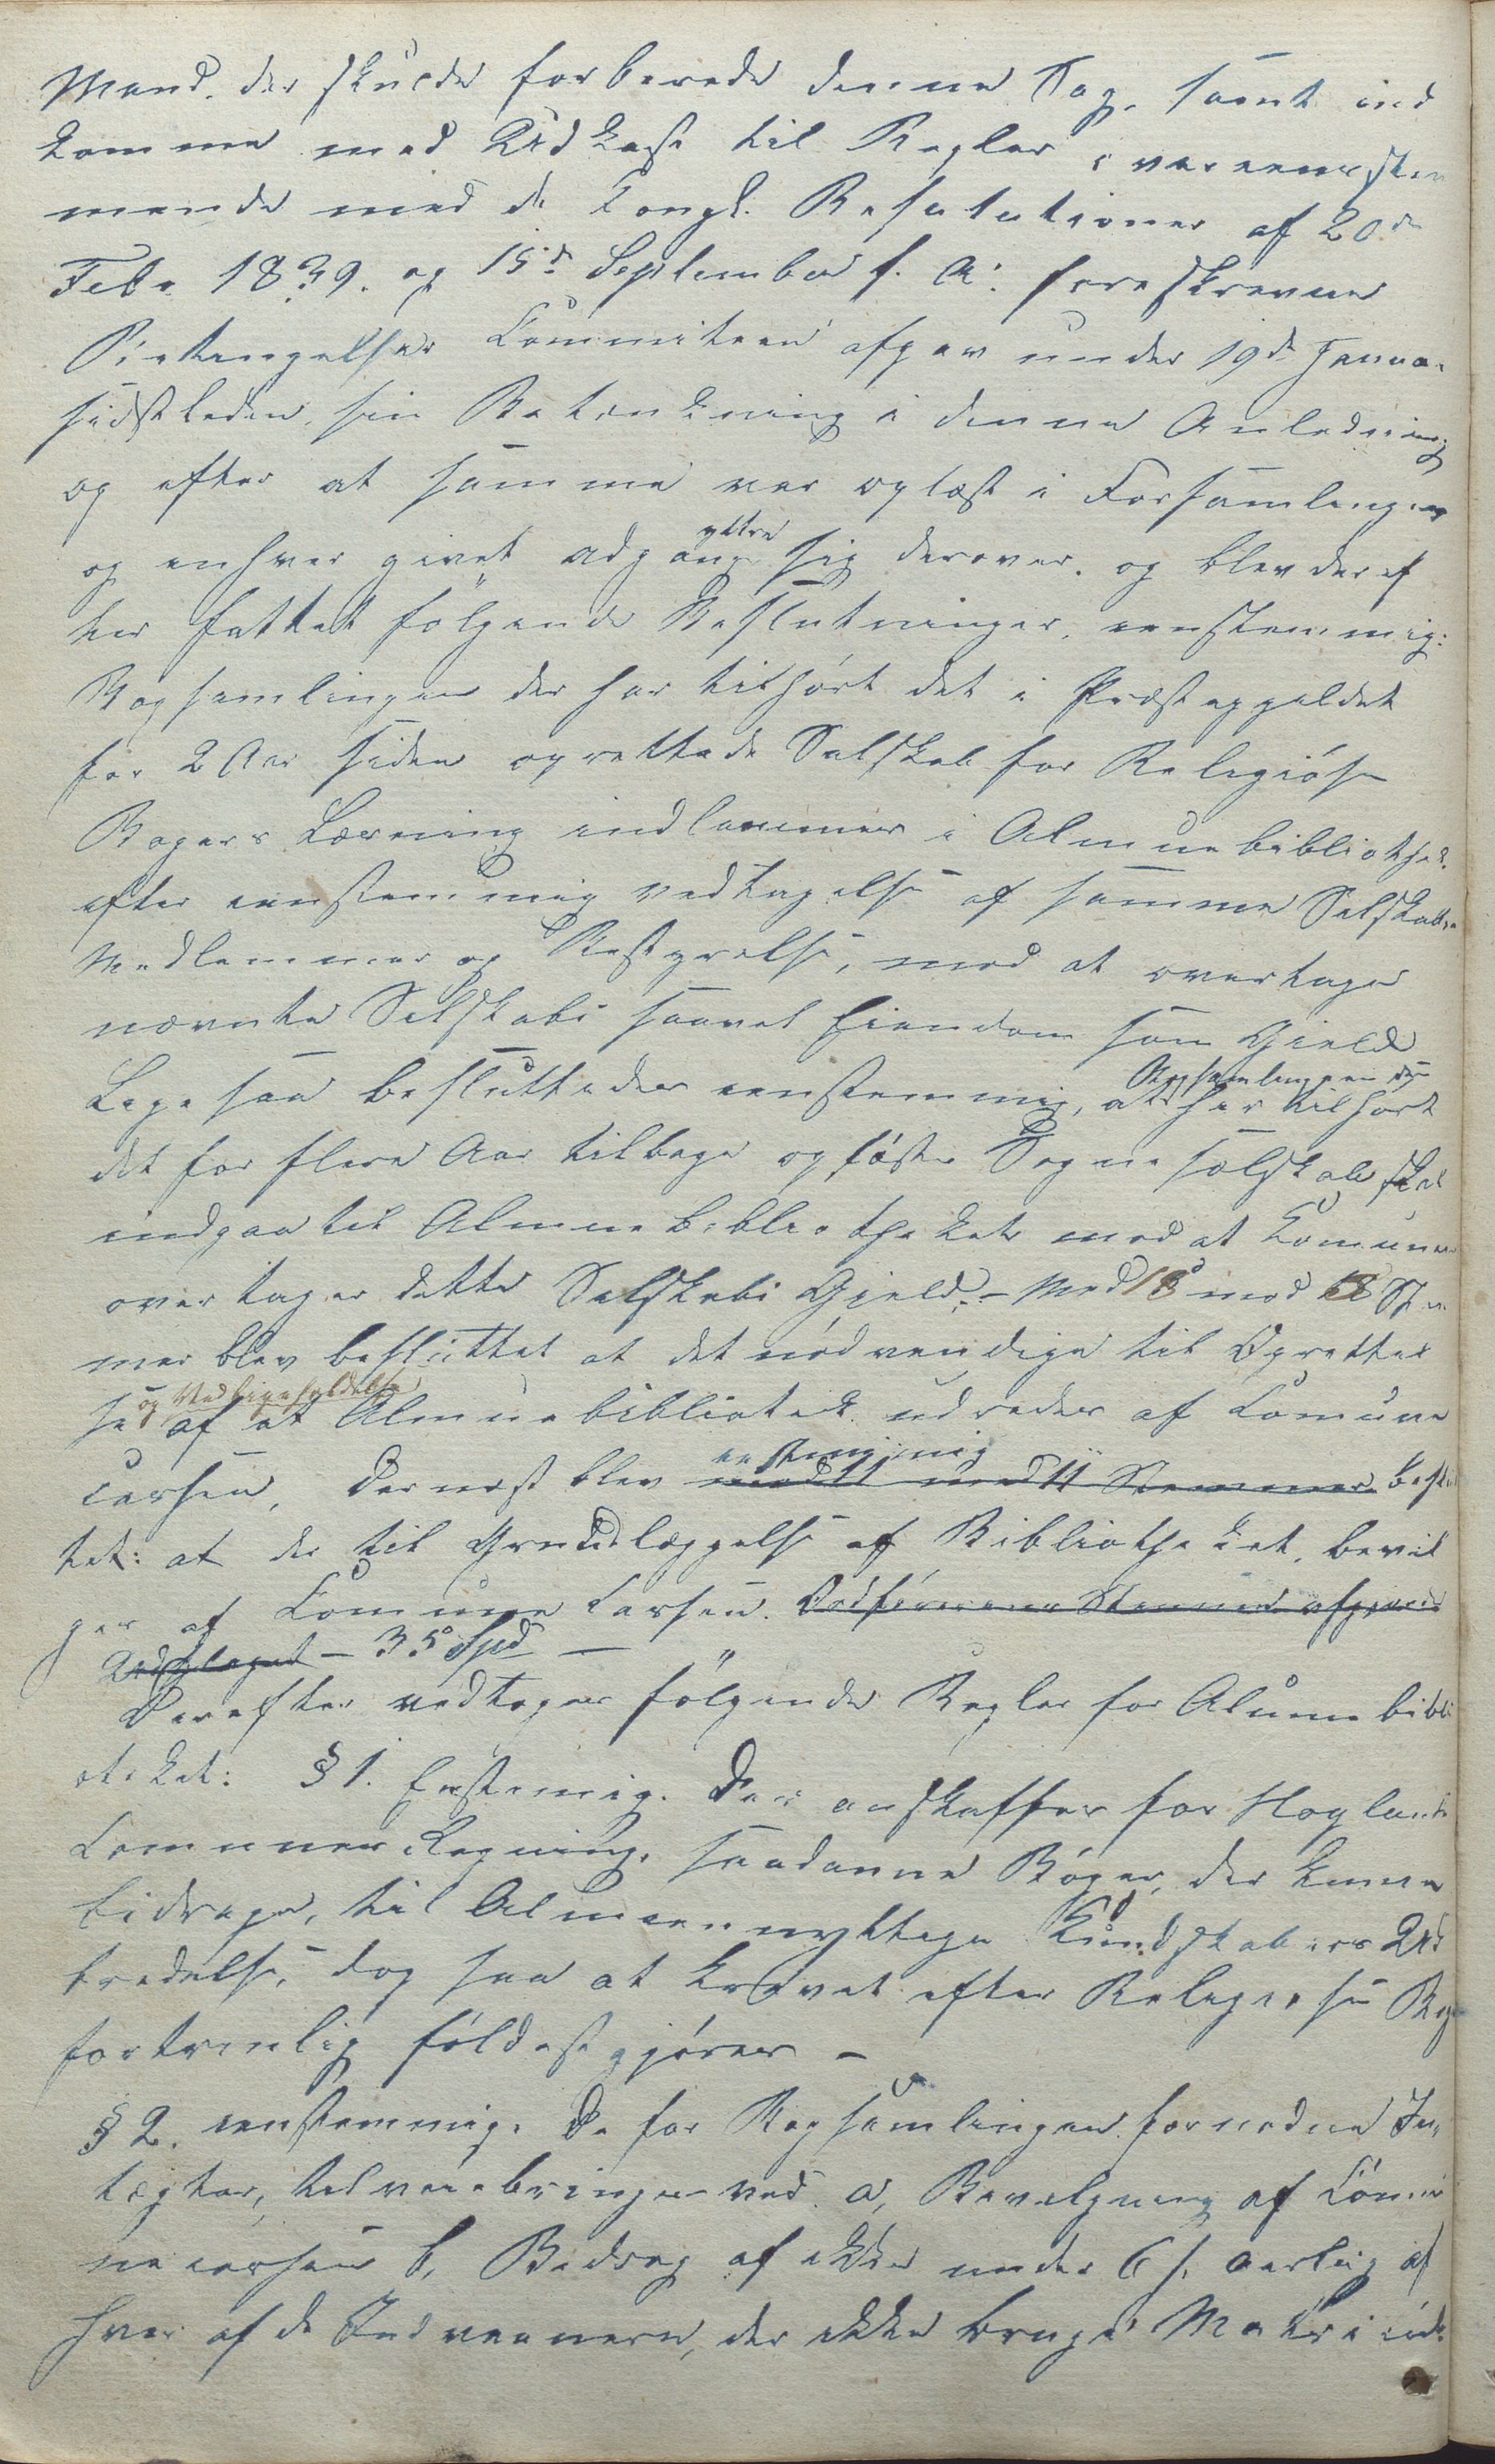 Mænd. der skulde forberede denne Sag, samt ind
komme med Udkast til Regler overeensstem
mende med de Kongl. Resolutioner af 20de
Febr 1839. og 15de September s. A: foreskrevne
Betingelser Committeen afgav under 19de Janua.
sidstleden, sin Betænkning i denne Anledning
og efter at samme var oplæst i Forsamlingen
og enhver givet adgang yttre sig derover. og blev deref
ter fattet følgende Beslutninger, eenstemmig:
Bogsamlingen der har tilhørt det i Præstegjeldet
for 2 Aar siden oprettede Selskab for Religiøse
Bøgers Læsning indlemmes i Almuebibliothek.
efter eenstemmig vedtagelse af samme Selskabs
Medlemmer og Bestyrelse, mod at overtage
nævnte Selskabs saavel Eiendom som Gield
Lige saa besluttedes eenstemmig, at Bogsamlingen der har tilhørt
det for flere Aar tilbage opløste Sogneselskab skal
indgaa til Almuebibliotheket mod at Comunen
overtager dette Selskabs Gjeld. - Med 18 mod 12 Stem
mer blev besluttet at det nødvendige til Oprettel
se og Vedligeholdelse af et Almuebibliothek udredes af Comune
cassen, Dernæst blev eenstemmig med 11 mod 11 Stemmer beslut
tet: at der til Grundlæggelse af Bibliotheket, bevil
ges af Comune Cassen. Ordførerens Stemme afgjorde
Udslaget - 35 Spd -
Derefter vedtoges følgende Regler for Almuebibli
oteket: § 1. Enstemig. Der anskaffes for Høylands
Comunes Regning, saadanne Bøger, der kunne
bidrage, til Almeennyttige Kundskabers Ud
bredelse, dog saa at Kravet efter Religiøse Bøger
fortrinlig fyldestgjøres -
§ 2. eenstemmig. De for Bogsamlingen fornødne In,
tægter, tilveiebringes ved a, Bevilgning af Comu
necassen b, Bidrag af ikke under 6 s. aarlig af
hver af de Indvaanere, der ikke bruge Matriculr.